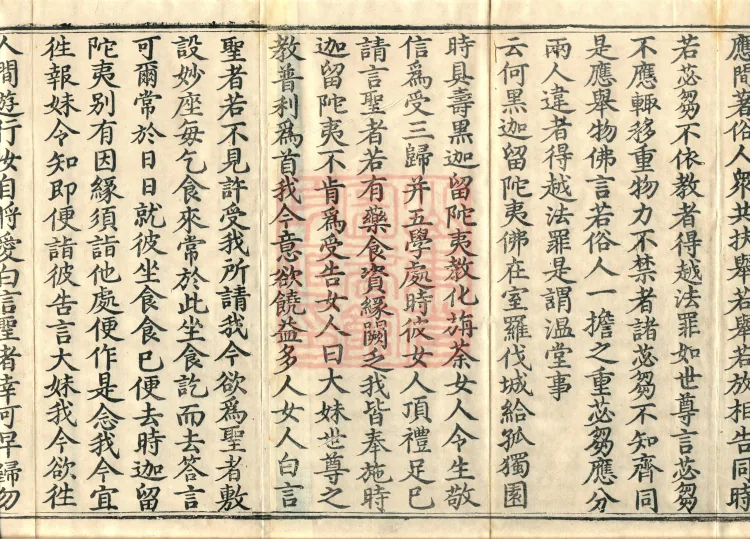 應問著依人衆共扶舉若舉若放相告同時
若苾芻不依教者得越法罪如世尊言苾芻
不應輙移重物力不禁者諸苾芻不知齊同
是應舉物佛言若俗人一擔之重苾芻應分
兩人違者得越法罪是謂温堂事
云何黑迦留陀夷佛在室羅伐城給孤獨園
時具壽黑迦留陀夷教化旃荼女人令生敬
信爲受三歸并五學處時彼女人頂禮足已
請言聖者若有藥食資緣闕乏我皆奉施時
迦留陀夷不肯爲受告女人曰大妹世尊之
教普利爲首我今意欲饒益多人女人白言
聖者若不見許受我所請我今欲爲聖者敷
設妙座每乞食來常於此坐食訖而去答言
可爾常於日日就彼坐食食已便去時迦留
陀夷别有因緣須詣他處便作是念我今宜
徃報妹令知即便詣彼告言大妹我今欲徃
人間遊行汝自將愛白言聖者幸可早歸勿